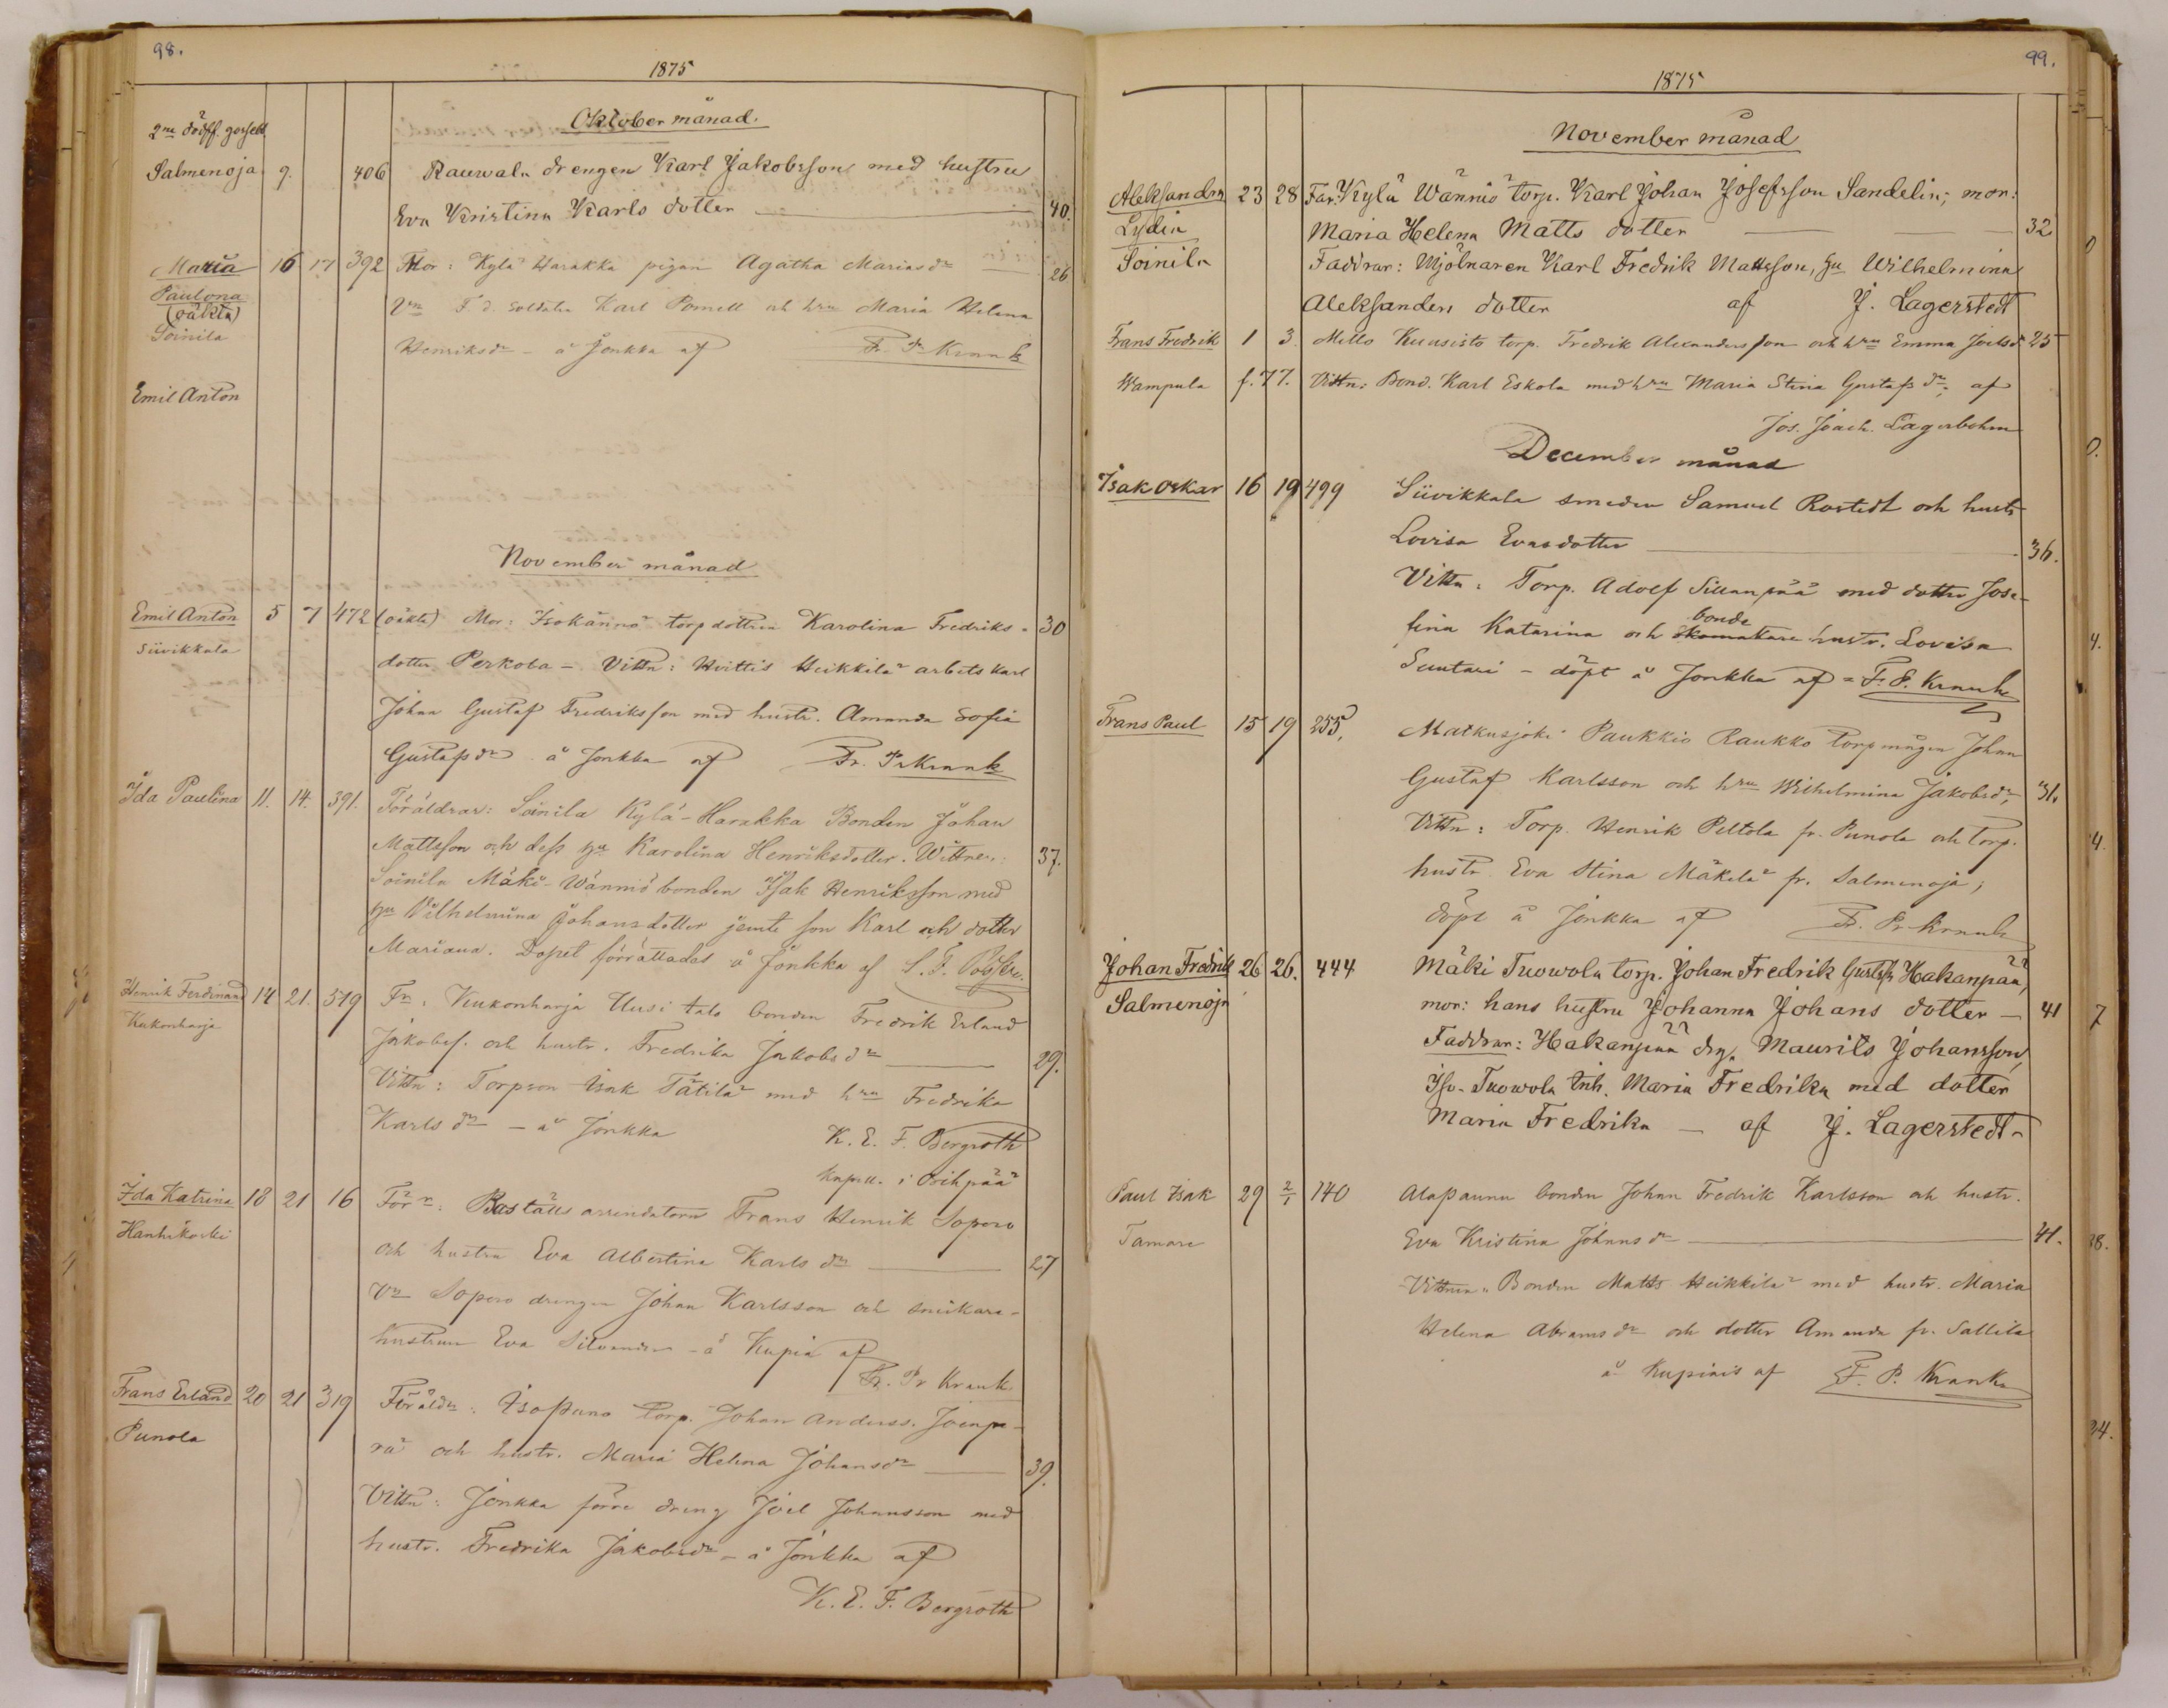 98.
1875
Oktober månad.
2ne dödf. gossar
Salmenoja 9. 406 Rauwala drengen Karl Jakobsson med hustru
Eva Kristina Karls dotter 40.
Maria 16 17 392 Mor: Kylä Harakka pigan Agatha Mariasdr 26
Paulona
(oäkta) Vn F. d. Soldaten Karl Pomell och hru Maria Helena
Soinila Henriksdr – å Jonkka af Fr. Pr Krank
Emil Anton
November månad
Emil Anton 5 7 472 (oäkta) Mor: Isokännö torpdottren Karolina Fredriks- 30
Siivikkala dotter Perkola – Vittn: Huittis Heikkilä arbets karl
Johan Gustaf Fredriksson med hustr. Amanda Sofia
Gustafsdr å Jonkka af Fr. Pr Krank
Ida Paulina 11. 14. 391. Föräldrar: Soinila Kylä-Harakka Bonden Johan
Mattsson och dess hu Karolina Henriksdotter. Wittne: 37.
Soinila Mäki-Wänniö bonden Isak Henriksson med
hu Vilhelmina Johansdotter jemte son Karl och dotter
Mariana. Dopet förrättades å Jonkka af
Henrik Ferdinand 14 21. 519 Fr: Kukonharja Uusi talo bonden Fredrik Erland
Kukonharja Jakobss. och hustr. Fredrika Jakobsdr 29.
Vittn: Torpson Isak Tätilä med hru Fredrika
Karlsdr – å Jonkka K. E. F. Bergroth
Kapell. i Oripää
Ida Katrina 18 21 16 För: Bastals arrendatorn Frans Henrik Sopero
Hanhikoski och hustru Eva Albertina Karlsdr 27
Vn Sopero drengen Johan Karlsson och snickare-
hustrun Eva Silvander – å Kupia af
Fr. Pr Krank
Frans Erland 20 21 319 Föräldr: Isopuno torp. Johan Anderss. Joenpe-
Punola rä och hustr. Maria Helena Johansdr 39.
Vittn: Jonkka förre dreng Joel Johansson med
hustr. Fredrika Jakobsdr – å Jonkka af
K. E. F. Bergroth
99.
1875
November månad
Aleksandra 23 28 Far: Kylä Wänniö torp. Karl Johan Josefsson Sandelin; mor:
Lydia Maria Helena Matts dotter 32
Soinila Faddrar: Mjölnaren Karl Fredrik Mattsson, hu Wilhelmina
Aleksanders dotter af J. Lagerstedt
Frans Fredrik 1 3. Mello Kuusisto torp. Fredrik Alexandersson och hru Emma Joelsdr 25
Wampula f. 77. Vittn: Bond. Karl Eskola med hru Maria Stina Gustafsdr; af
Jos. Joach. Lagerbohm
December månad
Isak Oskar 16 19 499 Siivikkala smeden Samuel Rostedt och hustr
Lovisa Evasdotter 36.
Vittn: Torp. Adolf Sillanpää med dotter Jose-
bonde
fina Katarina och skomakare hustr. Lovisa
Suutari – döpt å Jonkka af = F. P. Krank
Frans Paul 15 19 255. Matkusjoki Paukkio Raukko torpmågen Johan
Gustaf Karlsson och hru Wilhelmina Jakobsdr, 31.
Vittn: Torp. Henrik Peltola fr. Punola och torp.
hustr. Eva Stina Mäkelä fr. Salmenoja;
döpt å Jonkka af Fr. Pr Krank
Johan Fredrik 26 26. 444 Mäki Tuowola torp. Johan Fredrik Gustafs Hakanpää,
Salmenoja mor: hans hustru Johanna Johans dotter – 41
Faddrar: Hakanpää drg. Maurits Johansson,
Iso-Tuowola inh. Maria Fredrika med dotter
Maria Fredrika – af J. Lagerstedt
Paul Isak 29 2/1 140 Alapaunu bonden Johan Fredrik Karlsson och hustr.
Tamare Eva Kristina Johansdr 41.
Vittnen: Bonden Matts Heikkilä med hustr. Maria
Helena Abramsdr och dotter Amanda fr. Sallila
å Kupiais af F. P. Krank